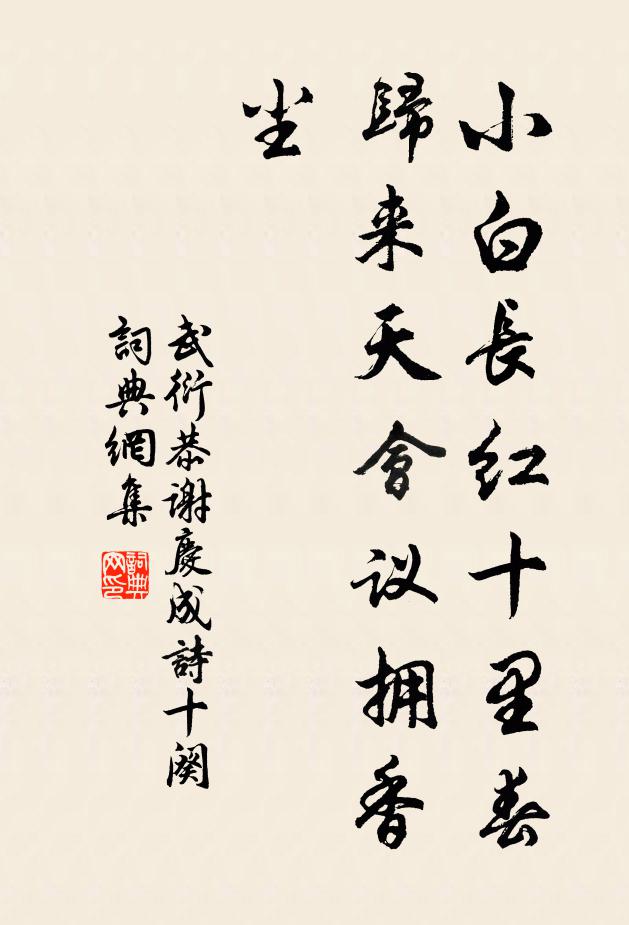 小白長红十里春
歸来天會议拥香
尘
武衍恭谢慶成詩十闋
詞典網集
詞典網印